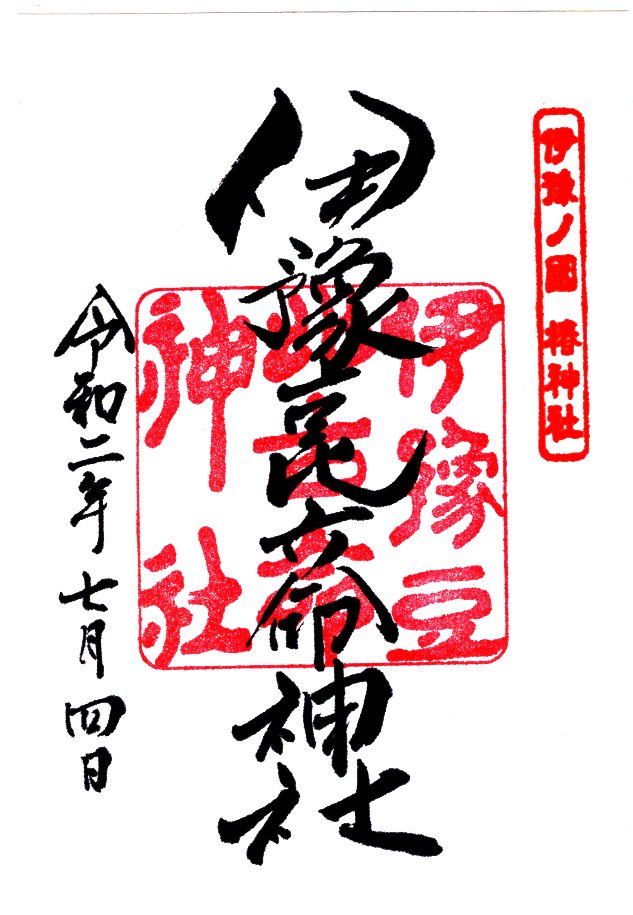 伊豫ノ國 椿神社
伊豫豆比古命神社
伊豫豆
比古命
神社
令和二年七月四日